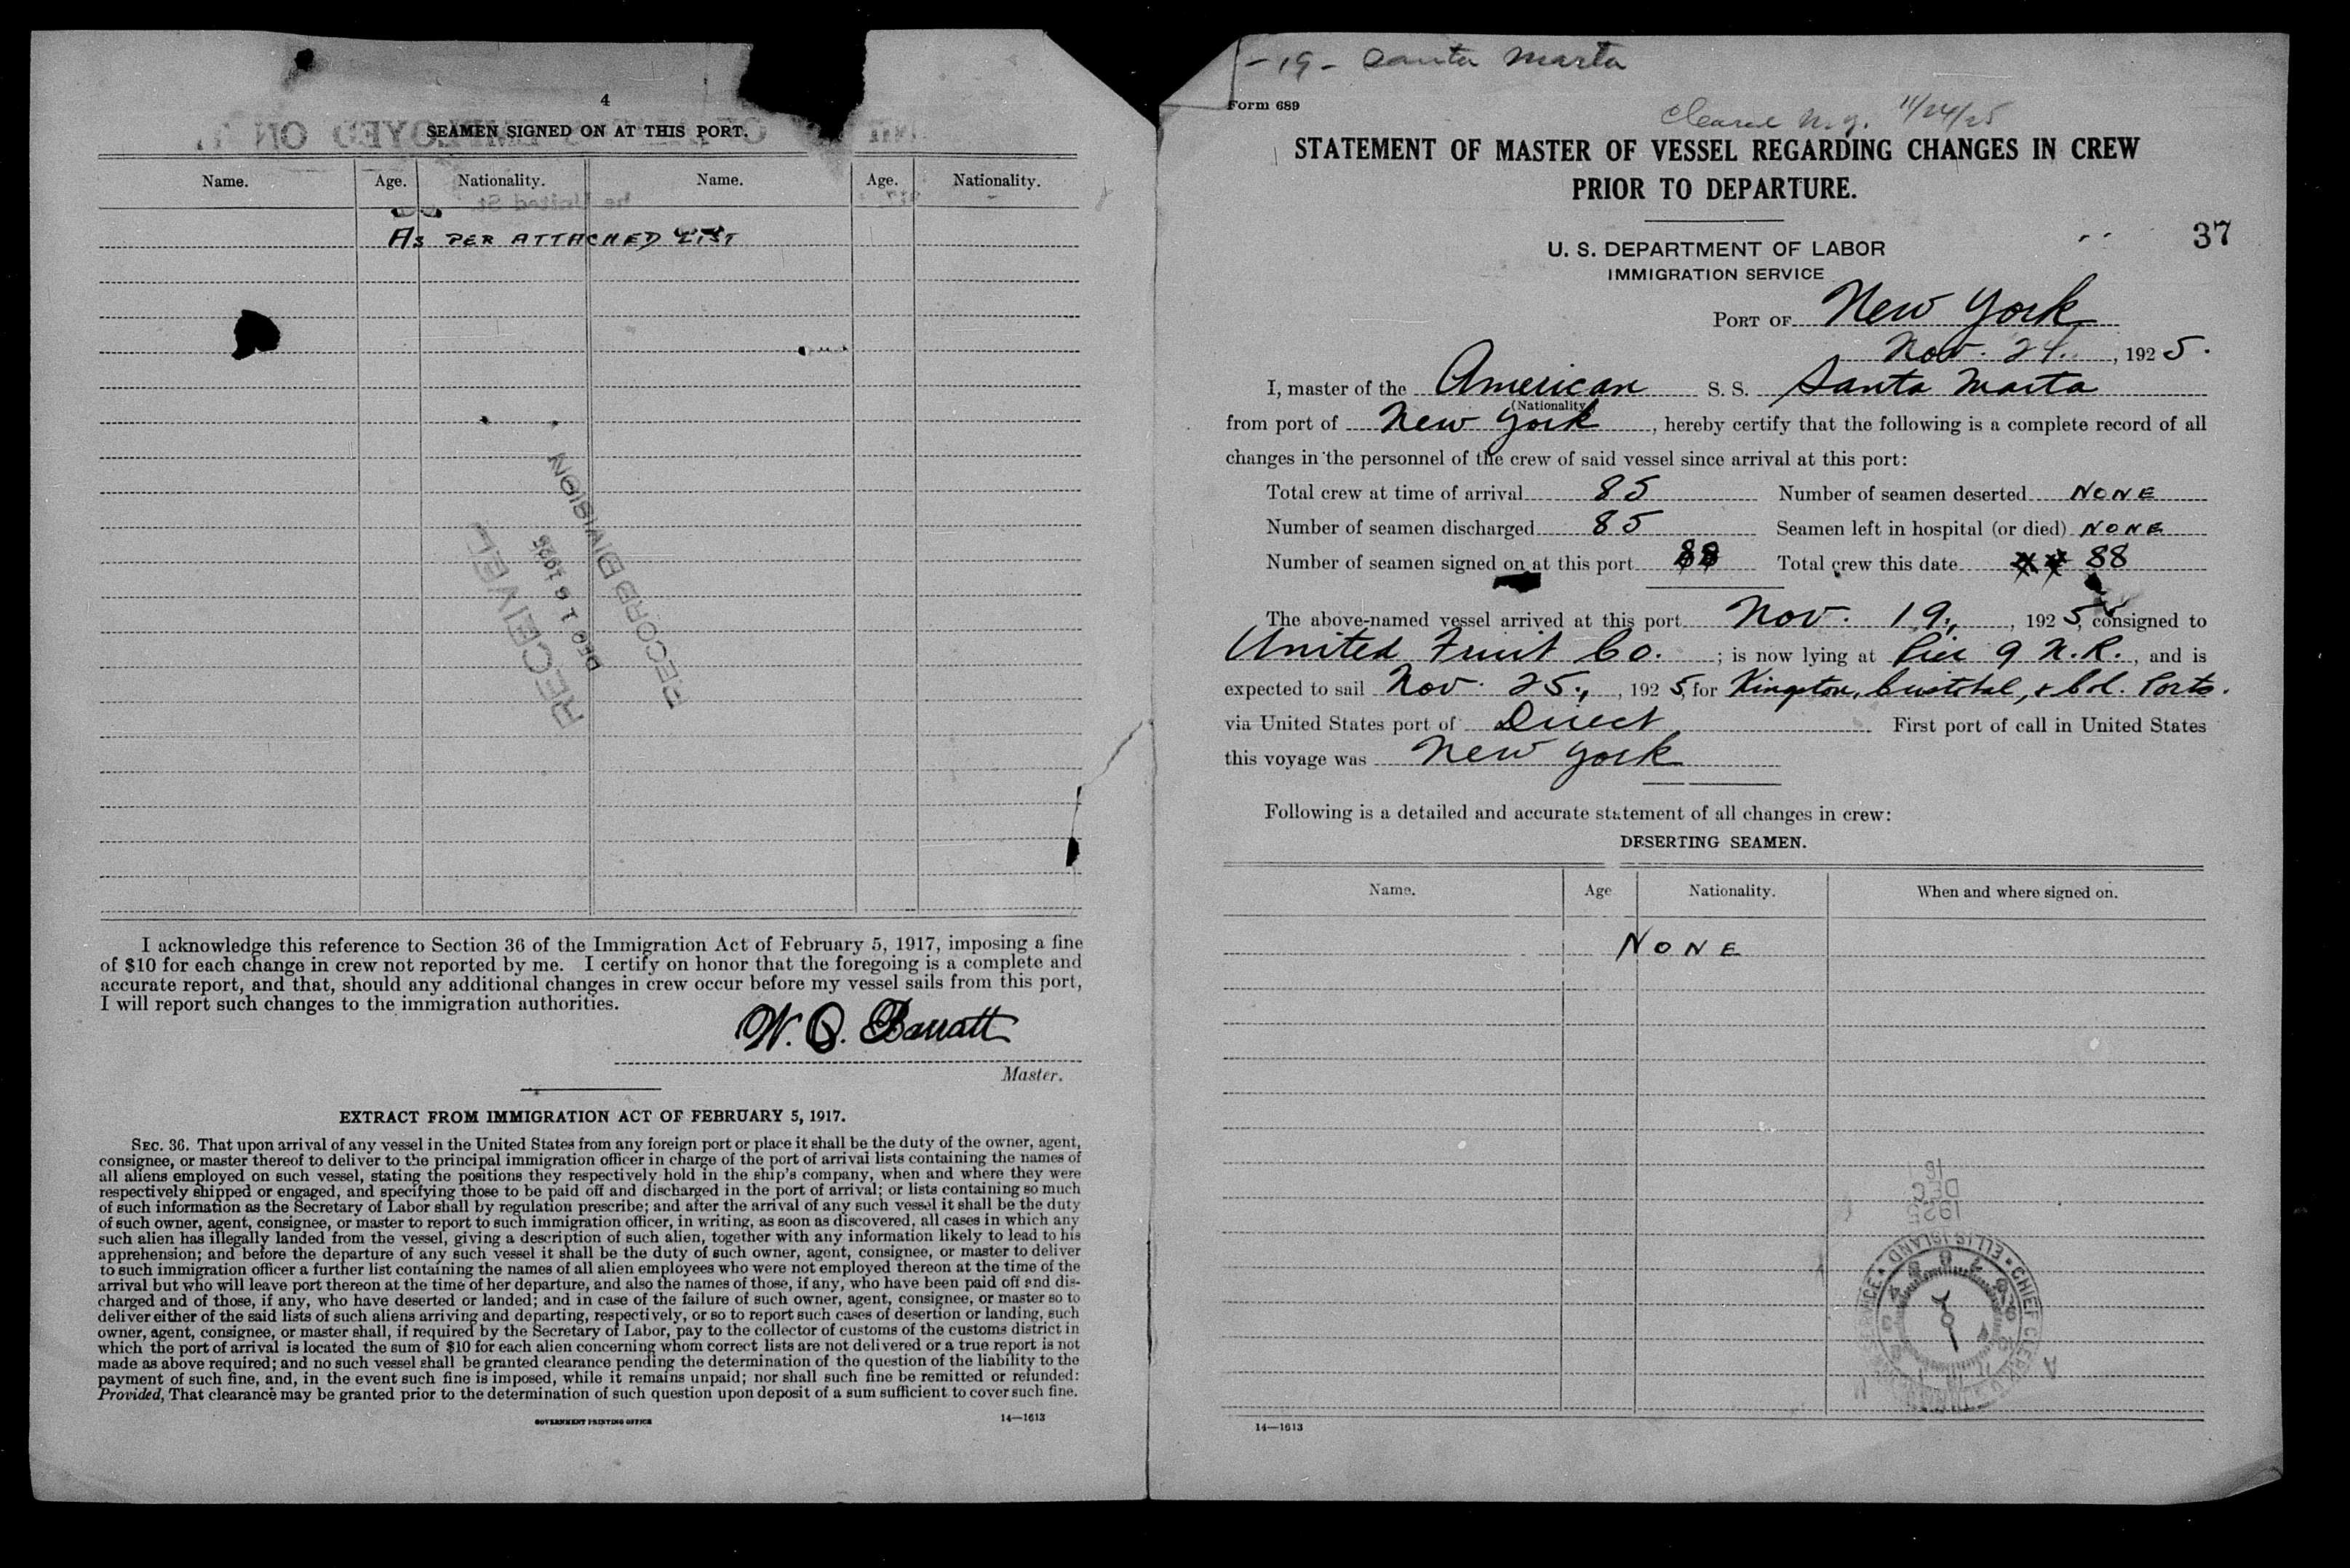 4
SEAMEN SIGNED ON AT THIS PORT.
Name. Age. Nationality. Name. Age. Nationality.
As PER ATTACHED LIST
RECORD DIVISION
I acknowledge this reference to Section 36 of the Immigration Act of February 5, 1917, imposing a fine
of $10 for each change in crew not reported by me. I certify on honor that the foregoing is a complete and
accurate report, and that, should any additional changes in crew occur before my vessel sails from this port,
I will report such changes to the immigration authorities.
W. Q. Barratt
Master.
EXTRACT FROM IMMIGRATION ACT OF FEBRUARY 5, 1917.
SEC. 36. That upon arrival of any vessel in the United States from any foreign port or place it shall be the duty of the owner, agent,
consignee, or master thereof to deliver to the principal immigration officer in charge of the port of arrival lists containing the names of
all aliens employed on such vessel, stating the positions they respectively hold in the ship's company, when and where they were
respectively shipped or engaged, and specifying those to be paid off and discharged in the port of arrival; or lists containing so much
of such information as the Secretary of Labor shall by regulation prescribe; and after the arrival of any such vessel it shall be the duty
of such owner, agent, consignee, or master to report to such immigration officer, in writing, as soon as discovered, all cases in which any
such alien has illegally landed from the vessel, giving a description of such alien, together with any information likely to lead to his
apprehension; and before the departure of any such vessel it shall be the duty of such owner, agent, consignee, or master to deliver
to such immigration officer a further list containing the names of all alien employees who were not employed thereon at the time of the
arrival but who will leave port thereon at the time of her departure, and also the names of those, if any, who have been paid off and dis-
charged and of those, if any, who have deserted or landed; and in case of the failure of such owner, agent, consignee, or master so to
deliver either of the said lists of such aliens arriving and departing, respectively, or so to report such cases of desertion or landing, such
owner, agent, consignee, or master shall, if required by the Secretary of Labor, pay to the collector of customs of the customs district in
which the port of arrival is located the sum of $10 for each alien concerning whom correct lists are not delivered or a true report is not
made as above required; and no such vessel shall be granted clearance pending the determination of the question of the liability to the
payment of such fine, and, in the event such fine is imposed, while it remains unpaid; nor shall such fine be remitted or refunded:
Provided, That clearance may be granted prior to the determination of such question upon deposit of a sum sufficient to cover such fine.
GOVERNMENT PRINTING OFFICE 14—1613
- 19 - Santa Marta
Form 689
11/24/25
STATEMENT OF MASTER OF VESSEL REGARDING CHANGES IN CREW
PRIOR TO DEPARTURE.
37
U. S. DEPARTMENT OF LABOR
IMMIGRATION SERVICE
PORT OF New York
Nov. 24., 1925.
I, master of the American S. S. Santa Marta
(Nationality)
from port of New York, hereby certify that the following is a complete record of all
changes in the personnel of the crew of said vessel since arrival at this port:
Total crew at time of arrival 85 Number of seamen deserted NONE
Number of seamen discharged 85 Seamen left in hospital (or died) NONE
Number of seamen signed on at this port 88 Total crew this date 88
The above-named vessel arrived at this port Nov. 19., 1925, consigned to
United Fruit Co. ; is now lying at Pier 9 N.R., and is
expected to sail Nov. 25., 1925, for Kingston, Cristobal, & Col. Ports.
via United States port of Direct First port of call in United States
this voyage was New York
Following is a detailed and accurate statement of all changes in crew:
DESERTING SEAMEN.
Name. Age Nationality. When and where signed on.
NONE
14—1613